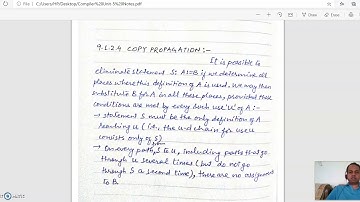 File | C:/Users/HP/Desktop/Compiler%20Unit%205%20Notes.pdf
9.1.2.4 COPY PROPAGATION :-
It is possible to
eliminate statement S: A:=B if we determine all
places where this definition of A is used. We may then
substitute B for A in all these places, provided those
conditions are met by every such use 'u' of A :-
→ Statement S must be the only definition of A
reaching u (i.e., the u-d chain for use u
consists only of S)
→ On every path, S to U, including paths that go
through u several times (but do not go
through S a second time), there are no assignment
to B.